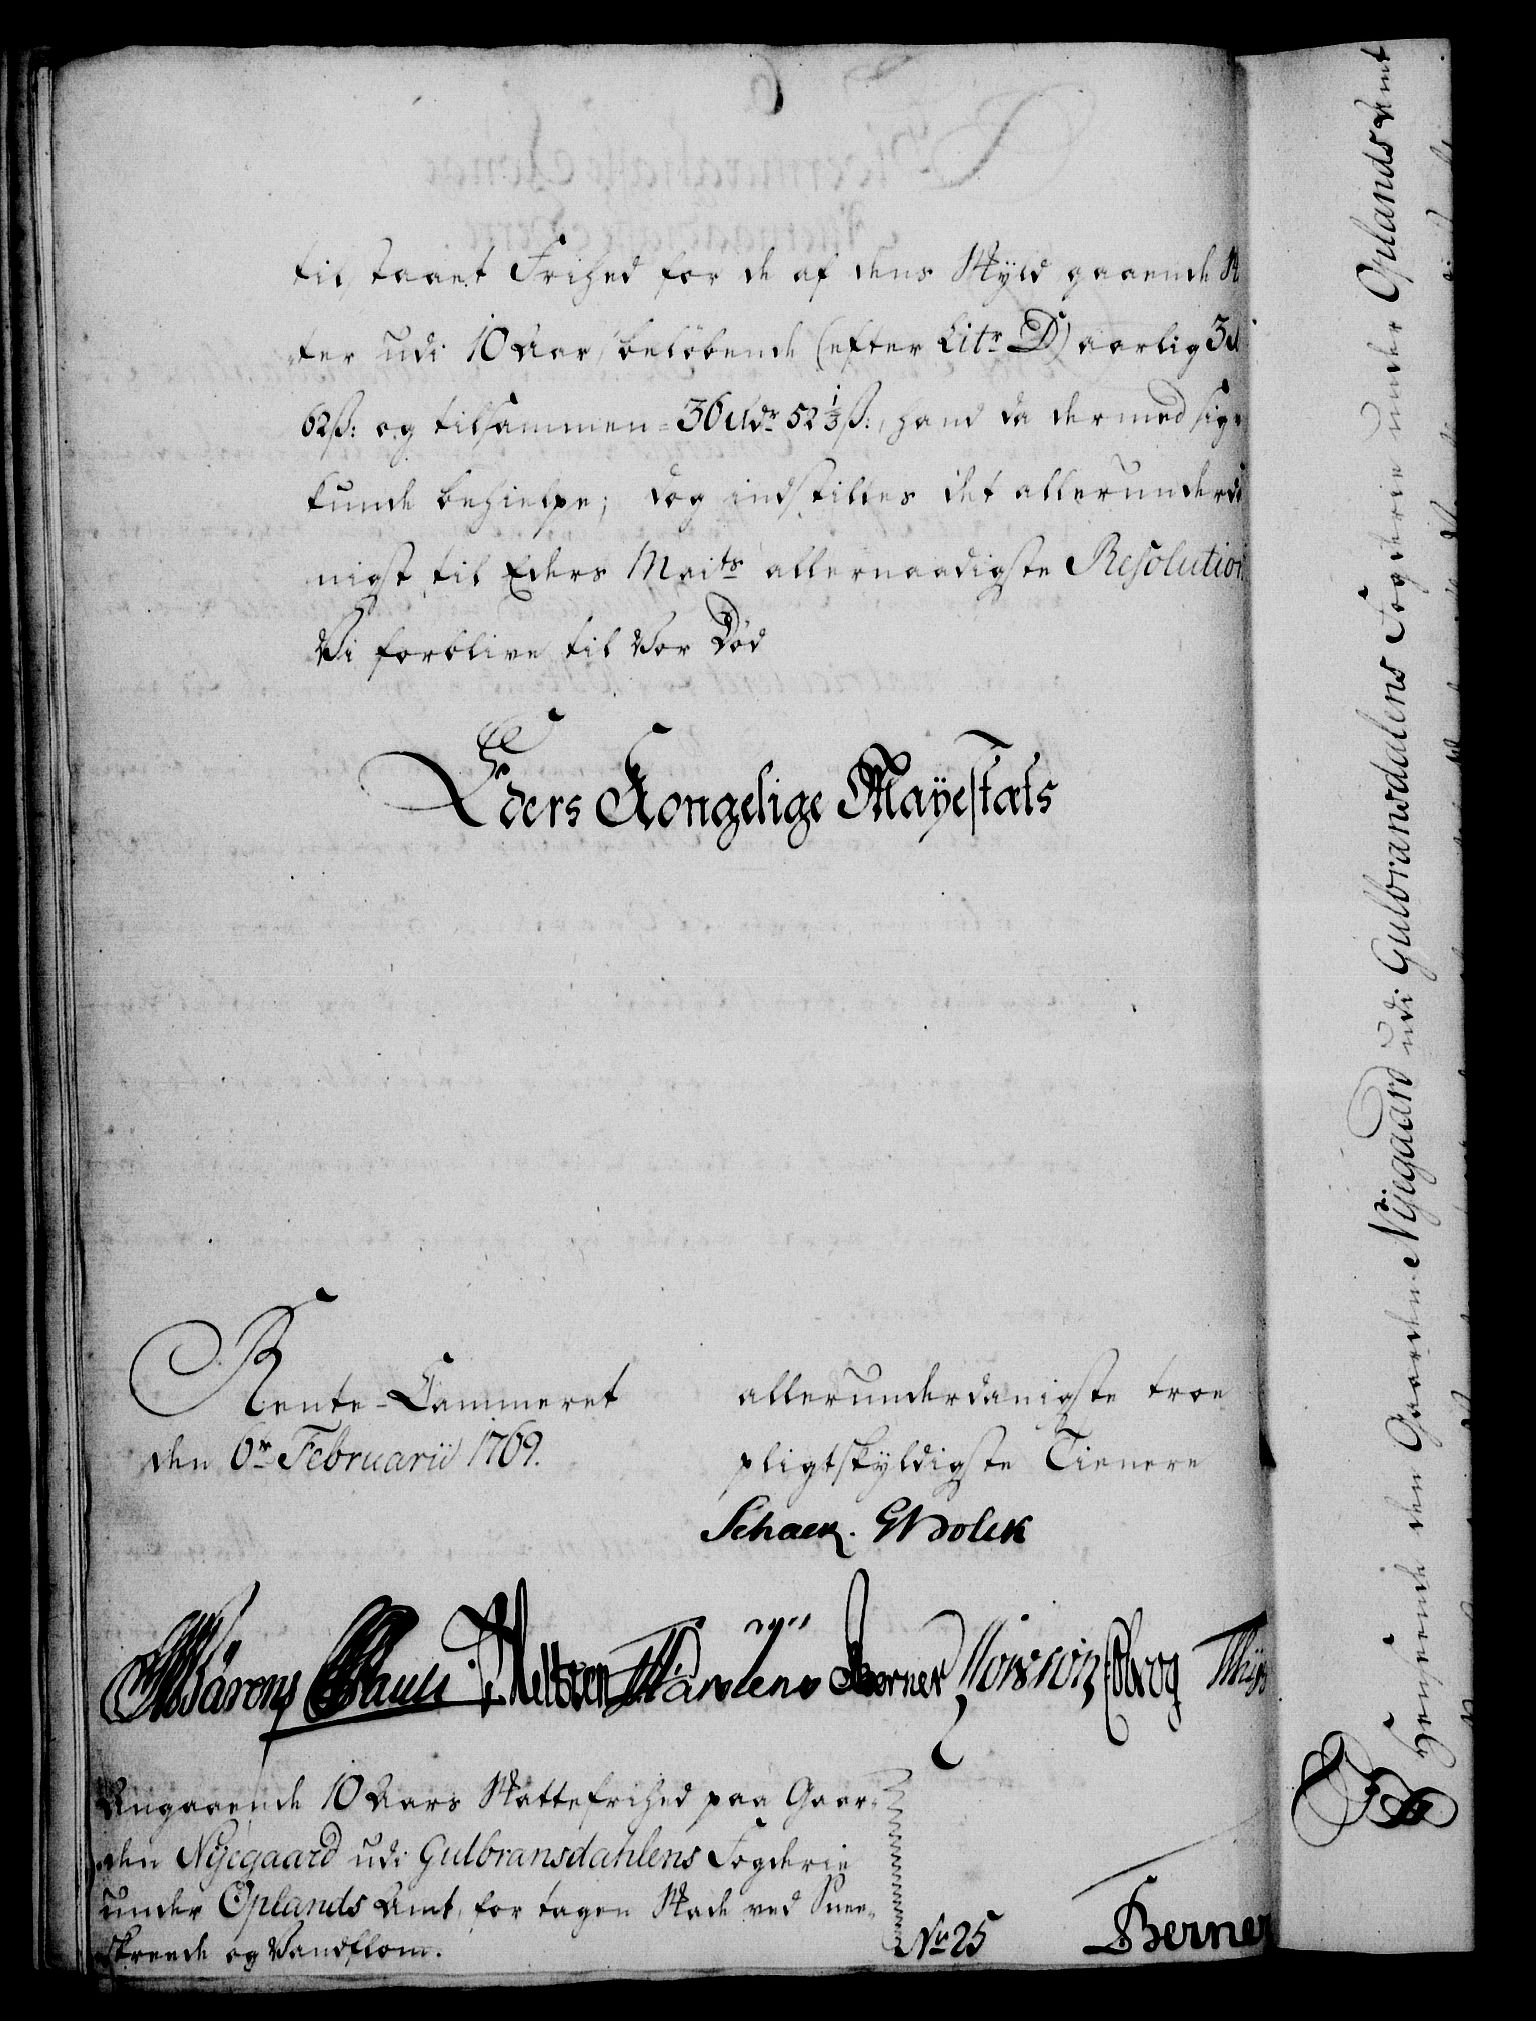 tilstaaet Frihed for de af dens Skyld gaaende
ter udi 10 Aar, beløbende (efter Litr. D) aarlig 3
62ß: og tilsammen = 36 rdr 52 1/3 ß:, hand da dermed sig
kunde behielpe; dog indstilles det allerunderd
nigst til Eders Maits allernaadigste Resolution
Vi forblive til Vor Død
Eders Kongelige Mayestæts
Rente-Cammeret
den 6te Februarii 1769.
allerunderdanigste troe
pligtskyldigste Tienere
Schack. GHolck
Bärens Pauli Selboen Karstens Berner Moisson Esbrog
Angaaende 10 Aars Skattefrihed paa Gaar-
den Nyegaard udi Gulbransdahlens Fogderie
under Oplands Amt, for tagen Skade ved Snee-
skreede og Vandflom.
No 25
Berner
henseende den Gaarden Nyegaard udi Gulbransdalens Fogderie under Oplands Amt